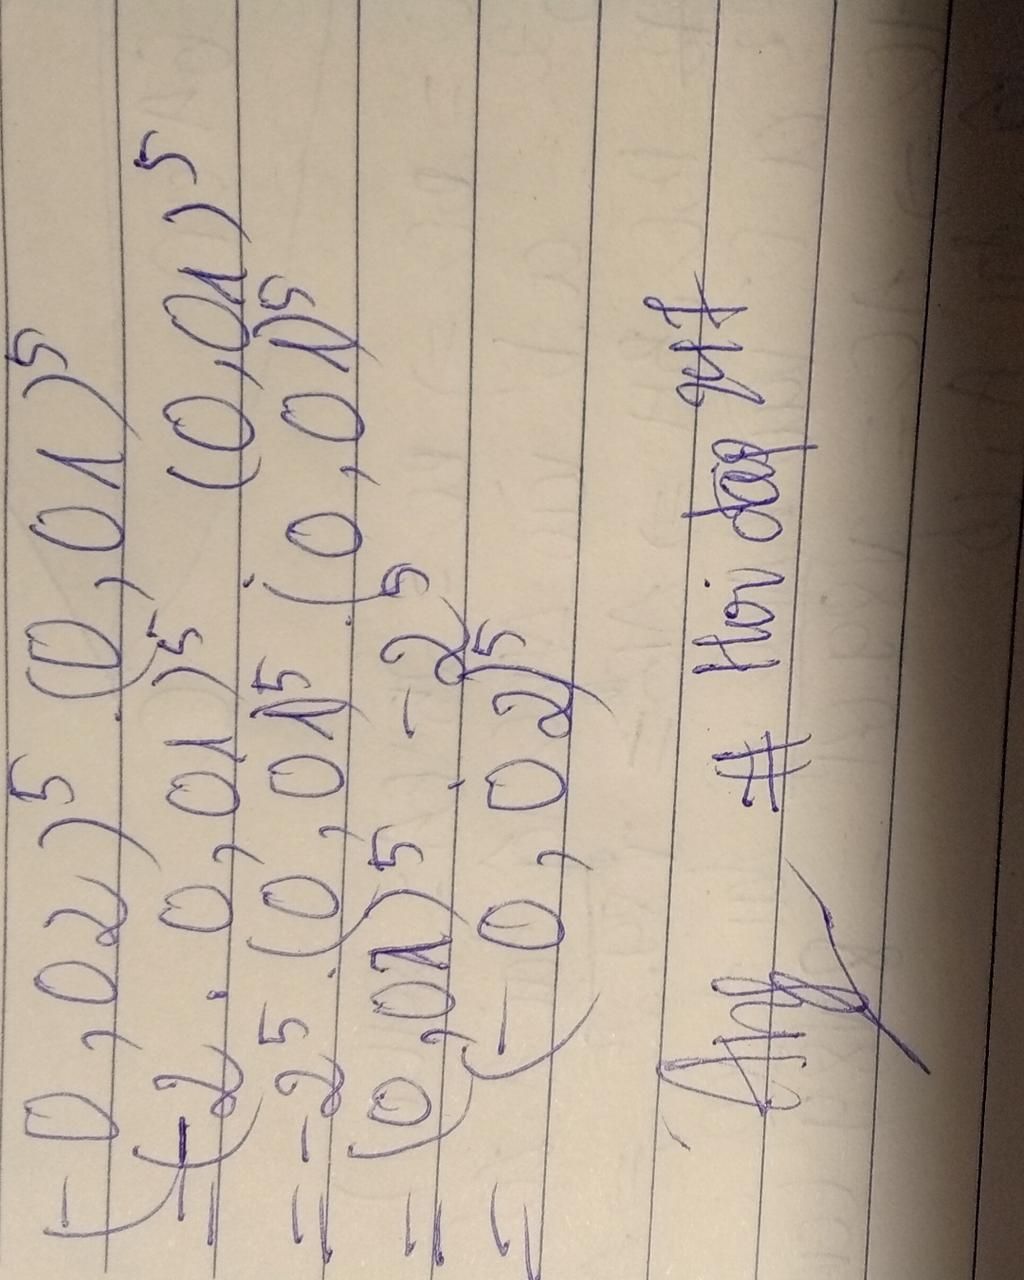 (-0,02)⁵ . (0,01)⁵
= (-2 . 0,01)⁵ . (0,01)⁵
= -2⁵ . (0,01⁵ . (0,01)⁵
= (0,01)⁵ . -2⁵
= (-0,02)⁵
# Hoi